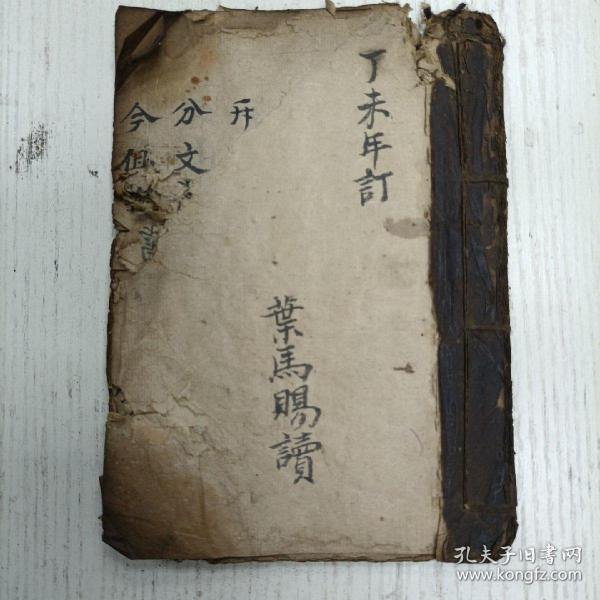 丁未年訂
葉馬賜讀
分文
今
孔夫子旧书网
www.kongfz.com